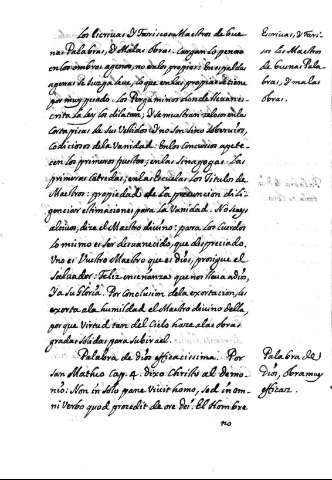 Los Escrivas, y Fariseos Maestros de bue-
nas Palabras, y Malas obras. Cargan lo pesso
en los ombros agenos, no en los propios: en espaldas
agenas se juzga leve, lo que en las propias se tiene
por muy pesado. Los Pergaminos son de
crita la ley los dilatan, y demuestran zelosos en la
de sus Vestidos y no son sino Servicios,
Codiciosos de la Vanidad. En los Concursos apete-
cen los primeros puestos; en las Sinagogas las
primeras Catedras; en las Escuelas los Titulos de
Maestros: propiedad de la presuncion dili-
genciar estimaciones para la Vanidad. No seays
altivos, dize el Maestro divino: para los Cuerdos
lo mismo es ser desvanecido, que despreciado.
Uno es Vuestro Maestro que es dios, prosigue el
Salvador: Feliz enseñanza que nos lleva a dios,
y a su Gloria. Por Conclusion de la exortacion,
exorta a la humildad el Maestro divino
porque Virtud tan del Cielo haze a las obras
gradas solidas para subir a el.
Palabra de dios efficacissima. Por
San Matheo Cap. 4. dixo Christo al demo-
nio: Non in solo pane vivit homo, sed in om-
ni Verbo quod procedit de ore dei. El Hombre
no
Escrivas, y Fari-
seos los Maestros
de buenas Pala-
bras, y malas
obras.
Palabra de
dios, obra muy
efficaz.